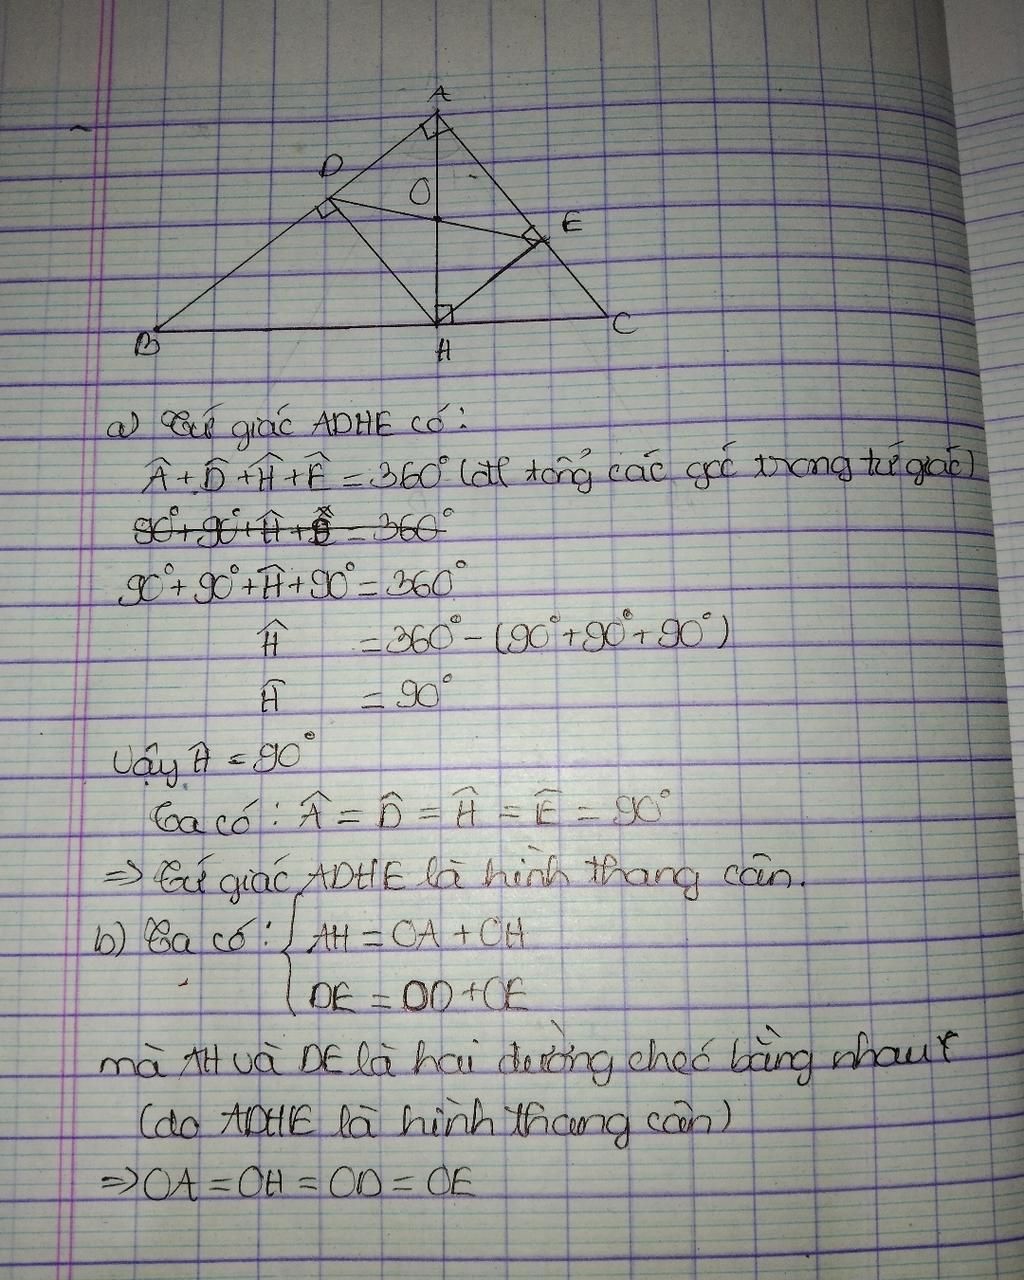 A
D
O
E
B
H
C
a) Tứ giác ADHE có:
Â + D̂ + Ĥ + Ê = 360° (đl tổng các góc trong tứ giác)
90° + 90° + Ĥ + = 360°
90° + 90° + Ĥ + 90° = 360°
Ĥ = 360° - (90° + 90° + 90°)
Ĥ = 90°
Vậy Ĥ = 90°
Ta có: Â = D̂ = Ĥ = Ê = 90°
=> Tứ giác ADHE là hình thang cân.
b) Ta có: { AH = OA + OH
DE = OD + OE
mà AH và DE là hai đường chéo bằng nhau
(do ADHE là hình thang cân)
=> OA = OH = OD = OE